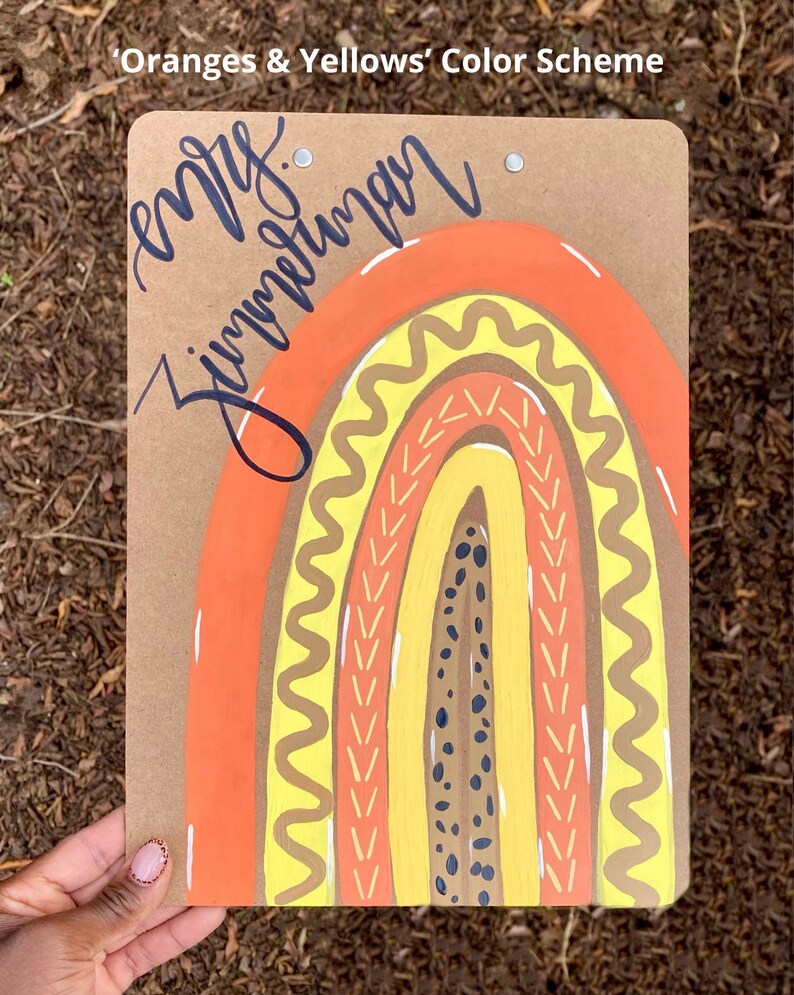 ‘Oranges & Yellows’ Color Scheme
mrs.
zimmerman